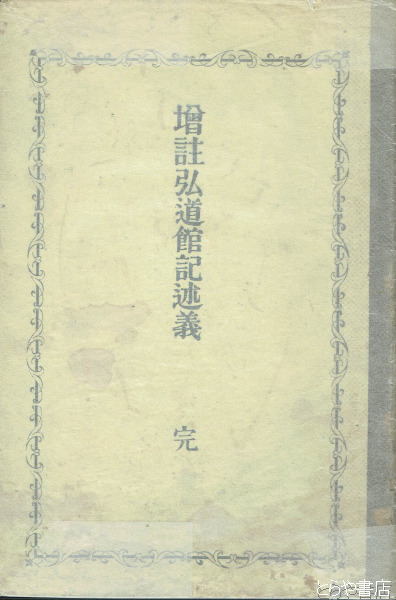 增註弘道館記述義 完
とらや書店